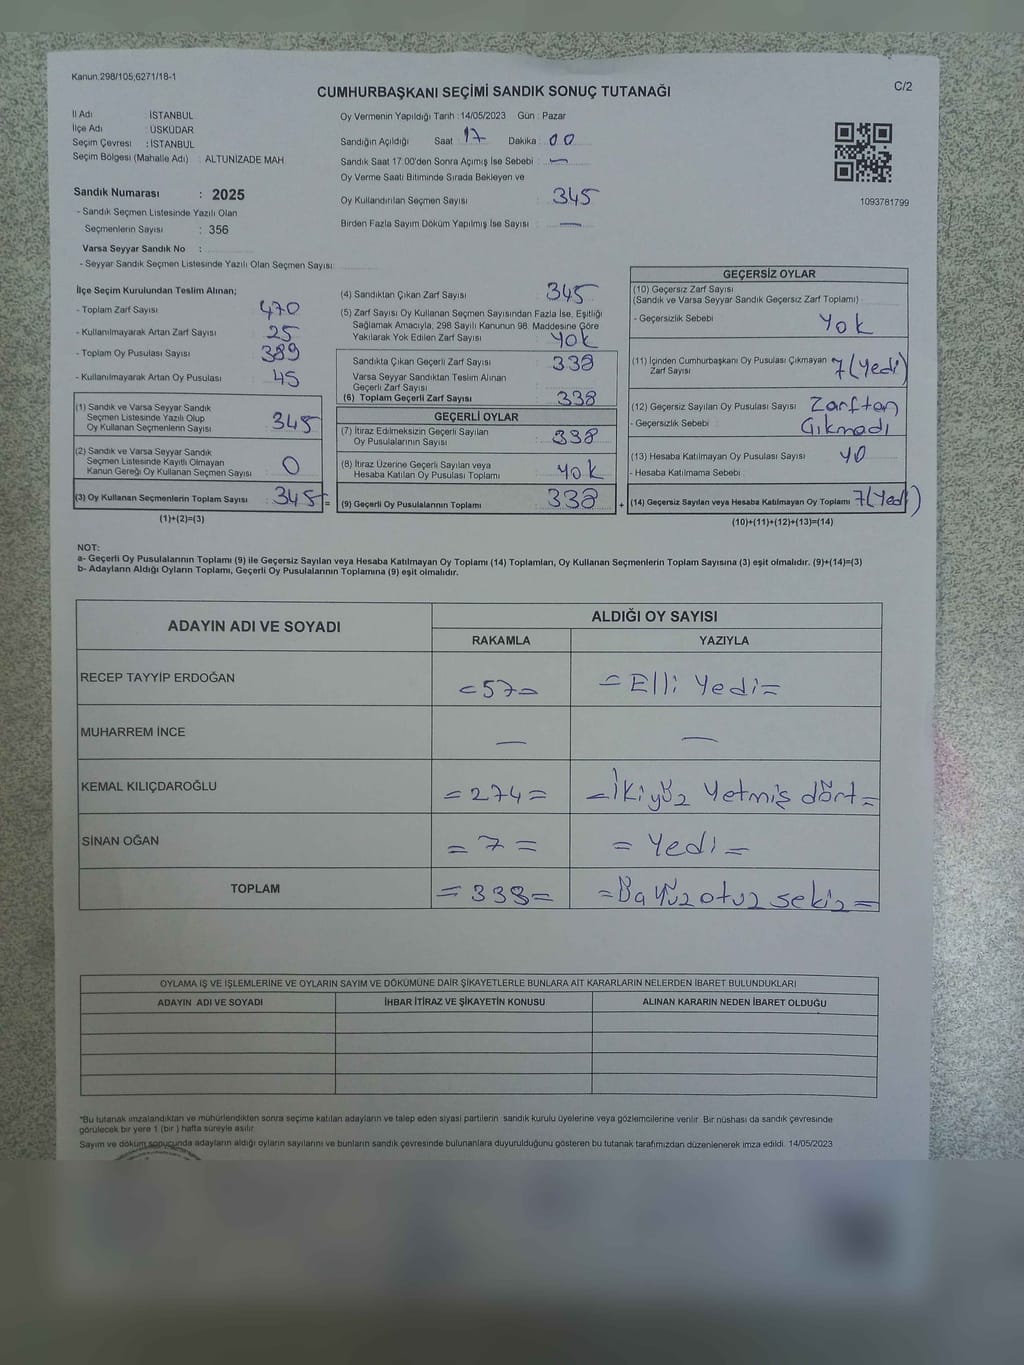 Kanun.298/105,6271/18-1
C/2
CUMHURBAŞKANI SEÇİMİ SANDIK SONUÇ TUTANAĞI
İl Adı : İSTANBUL
İlçe Adı : ÜSKÜDAR
Seçim Çevresi : İSTANBUL
Seçim Bölgesi (Mahalle Adı) : ALTUNİZADE MAH
Sandık Numarası : 2025
- Sandık Seçmen Listesinde Yazılı Olan
Seçmenlerin Sayısı : 356
Varsa Seyyar Sandık No :
- Seyyar Sandık Seçmen Listesinde Yazılı Olan Seçmen Sayısı:
Oy Vermenin Yapıldığı Tarih : 14/05/2023 Gün : Pazar
Sandığın Açıldığı Saat : 17 Dakika : 00
Sandık Saat 17:00'den Sonra Açımış İse Sebebi : —
Oy Verme Saati Bitiminde Sırada Bekleyen ve
Oy Kullandırılan Seçmen Sayısı : 345
Birden Fazla Sayım Döküm Yapılmış İse Sayısı : —
1093781799
İlçe Seçim Kurulundan Teslim Alınan;
- Toplam Zarf Sayısı : 470
- Kullanılmayarak Artan Zarf Sayısı : 25
- Toplam Oy Pusulası Sayısı : 389
- Kullanılmayarak Artan Oy Pusulası : 45
(1) Sandık ve Varsa Seyyar Sandık
Seçmen Listesinde Yazılı Olup
Oy Kullanan Seçmenlerin Sayısı : 345
(2) Sandık ve Varsa Seyyar Sandık
Seçmen Listesinde Kayıtlı Olmayan
Kanun Gereği Oy Kullanan Seçmen Sayısı : 0
(3) Oy Kullanan Seçmenlerin Toplam Sayısı : 345 =
(1)+(2)=(3)
(4) Sandıktan Çıkan Zarf Sayısı : 345
(5) Zarf Sayısı Oy Kullanan Seçmen Sayısından Fazla İse, Eşitliği
Sağlamak Amacıyla, 298 Sayılı Kanunun 98. Maddesine Göre
Yakılarak Yok Edilen Zarf Sayısı : Yok
Sandıkta Çıkan Geçerli Zarf Sayısı : 338
Varsa Seyyar Sandıktan Teslim Alınan
Geçerli Zarf Sayısı :
(6) Toplam Geçerli Zarf Sayısı : 338
GEÇERLİ OYLAR
(7) İtiraz Edilmeksizin Geçerli Sayılan
Oy Pusulalarının Sayısı : 338
(8) İtiraz Üzerine Geçerli Sayılan veya
Hesaba Katılan Oy Pusulası Toplamı : Yok
(9) Geçerli Oy Pusulalarının Toplamı : 338 +
GEÇERSİZ OYLAR
(10) Geçersiz Zarf Sayısı
(Sandık ve Varsa Seyyar Sandık Geçersiz Zarf Toplamı)
- Geçersizlik Sebebi : Yok
(11) İçinden Cumhurbaşkanı Oy Pusulası Çıkmayan
Zarf Sayısı : 7 (Yedi)
(12) Geçersiz Sayılan Oy Pusulası Sayısı : Zarftan
- Geçersizlik Sebebi : Çıkmadı
(13) Hesaba Katılmayan Oy Pusulası Sayısı :
- Hesaba Katılmama Sebebi :
(14) Geçersiz Sayılan veya Hesaba Katılmayan Oy Toplamı : 7 (Yedi)
(10)+(11)+(12)+(13)=(14)
NOT:
a- Geçerli Oy Pusulalarının Toplamı (9) ile Geçersiz Sayılan veya Hesaba Katılmayan Oy Toplamı (14) Toplamları, Oy Kullanan Seçmenlerin Toplam Sayısına (3) eşit olmalıdır. (9)+(14)=(3)
b- Adayların Aldığı Oyların Toplamı, Geçerli Oy Pusulalarının Toplamına (9) eşit olmalıdır.
ADAYIN ADI VE SOYADI ALDIĞI OY SAYISI
RAKAMLA YAZIYLA
RECEP TAYYİP ERDOĞAN =57= =Elli Yedi=
MUHARREM İNCE — —
KEMAL KILIÇDAROĞLU =274= =İkiyüz Yetmiş dört=
SİNAN OĞAN =7= =Yedi=
TOPLAM =338= otuz sekiz=
OYLAMA İŞ VE İŞLEMLERİNE VE OYLARIN SAYIM VE DÖKÜMÜNE DAİR ŞİKAYETLERLE BUNLARA AİT KARARLARIN NELERDEN İBARET BULUNDUKLARI
ADAYIN ADI VE SOYADI İHBAR İTİRAZ VE ŞİKAYETİN KONUSU ALINAN KARARIN NEDEN İBARET OLDUĞU
*Bu tutanak imzalandıktan ve mühürlendikten sonra seçime katılan adayların ve talep eden siyasi partilerin sandık kurulu üyelerine veya gözlemcilerine verilir. Bir nüshası da sandık çevresinde
görülecek bir yere 1 (bir) hafta süreyle asılır.
Sayım ve döküm sonucunda adayların aldığı oyların sayılarını ve bunların sandık çevresinde bulunanlara duyurulduğunu gösteren bu tutanak tarafımızdan düzenlenerek imza edildi. 14/05/2023